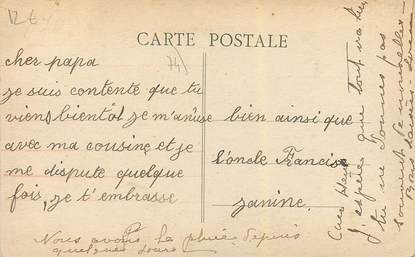 12 €
CARTE POSTALE
74
cher papa
je suis contente que tu
viens bientot je m'amuse
avec ma cousine et je
me dispute quelque
fois, je t'embrasse
bien ainsi que
l'oncle Francise
Janine.
Nous avons la pluie depuis
quelques jours
J'espère que tout va bien
tu ne donnes pas
souvent de nouvelles